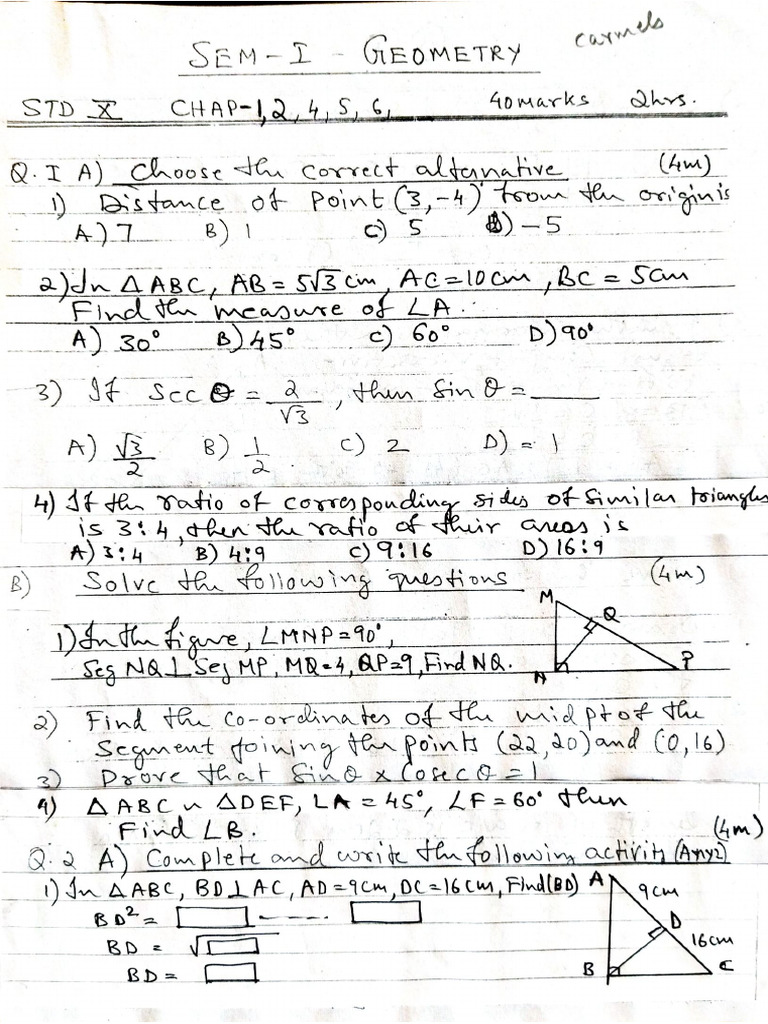 carmels
SEM-I - GEOMETRY
STD X CHAP-1,2,4,5,6, 40marks 2hrs.
Q.I A) Choose the correct alternative (4m)
1) Distance of point (3,-4) from the origin is
A) 7 B) 1 C) 5 D) -5
2) In △ABC, AB = 5√3 cm, AC = 10 cm, BC = 5cm
Find the measure of ∠A.
A) 30° B) 45° C) 60° D) 90°
3) If Sec θ = 2/√3, then Sin θ = ____
A) √3/2 B) 1/2 C) 2 D) = 1
4) If the ratio of corresponding sides of similar triangles
is 3:4, then the ratio of their areas is
A) 3:4 B) 4:9 C) 9:16 D) 16:9
B) Solve the following questions (4m)
M
Q
1) In the figure, ∠MNP = 90°,
Seg NQ ⊥ Seg MP, MQ = 4, QP = 9, Find NQ.
N P
2) Find the co-ordinates of the mid pt of the
segment joining the points (22,20) and (0,16)
3) Prove that Sinθ × Cosecθ = 1
4) △ABC ~ △DEF, ∠A = 45°, ∠F = 60° then
Find ∠B. (4m)
Q.2 A) Complete and write the following activity (Any2)
1) In △ABC, BD ⊥ AC, AD = 9cm, DC = 16cm, Find(BD) A 9cm
BD² = ☐ ----- ☐ D
BD = √☐ 16cm
BD = ☐ B C